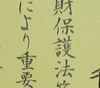 財保護法第
により重要